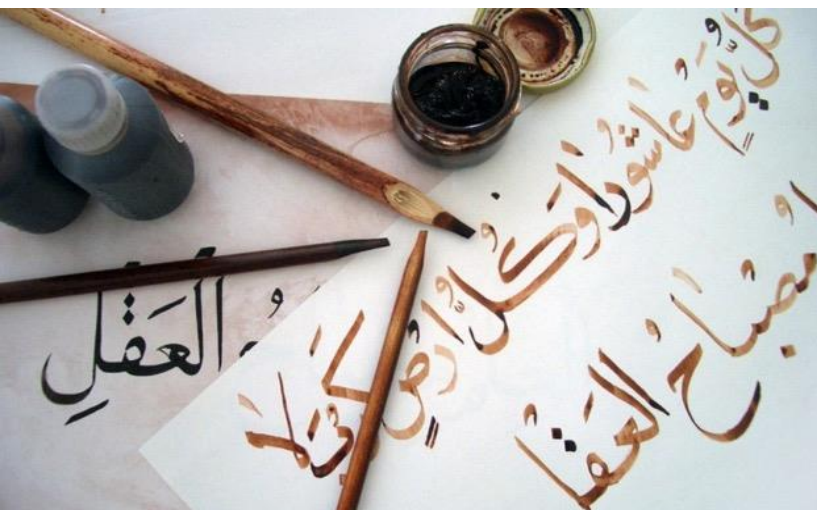 كُلُّ يَوْمٍ عَاشُورَا وَكُلُّ اَرْضٍ كَرْبَلَا
مِصْبَاحُ
الْعَقْلِ